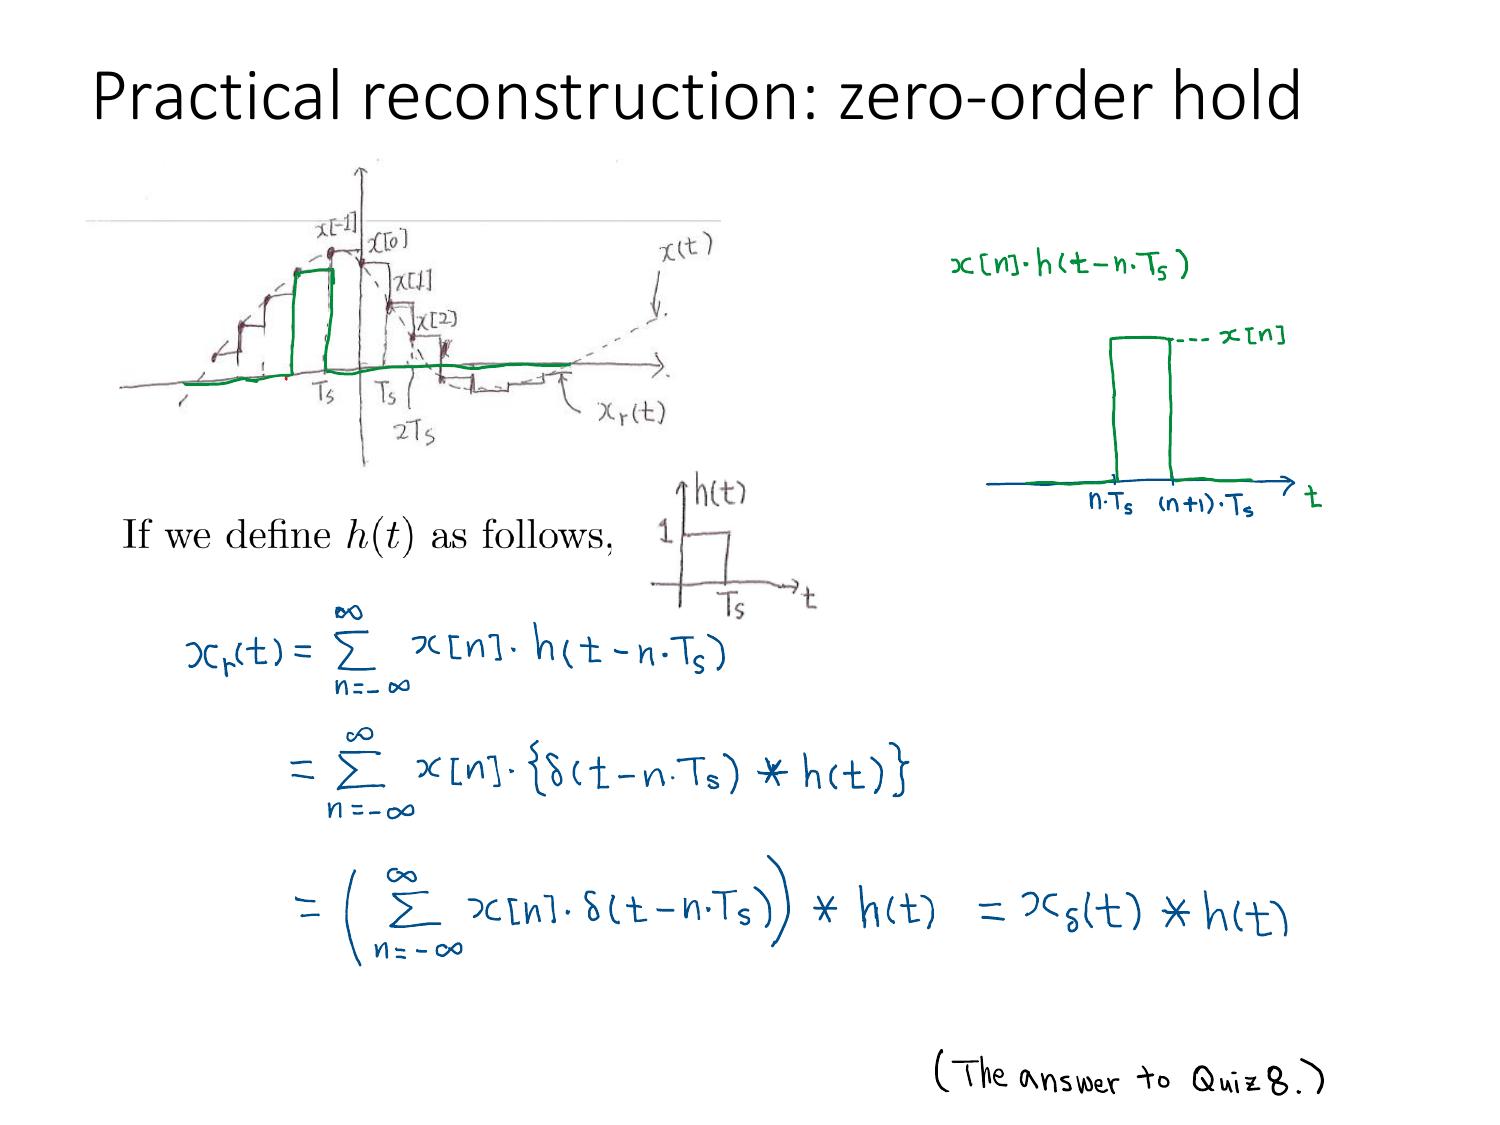 Practical reconstruction: zero-order hold
x[-1]
x[0]
x(t)
x[1]
x[2]
Ts Ts
2Ts
xr(t)
x[n]·h(t-n·Ts)
x[n]
n·Ts (n+1)·Ts t
If we define h(t) as follows,
h(t)
1
Ts t
xr(t) = ∑_{n=-∞}^{∞} x[n]·h(t-n·Ts)
= ∑_{n=-∞}^{∞} x[n]·{δ(t-n·Ts) * h(t)}
= (∑_{n=-∞}^{∞} x[n]·δ(t-n·Ts)) * h(t) = xδ(t) * h(t)
(The answer to Quiz 8.)